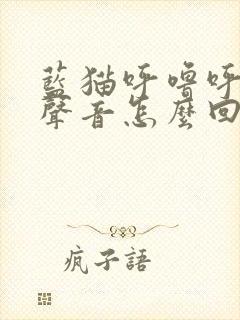 藍猫呼嚕呼
聲音怎麼回
疯子語